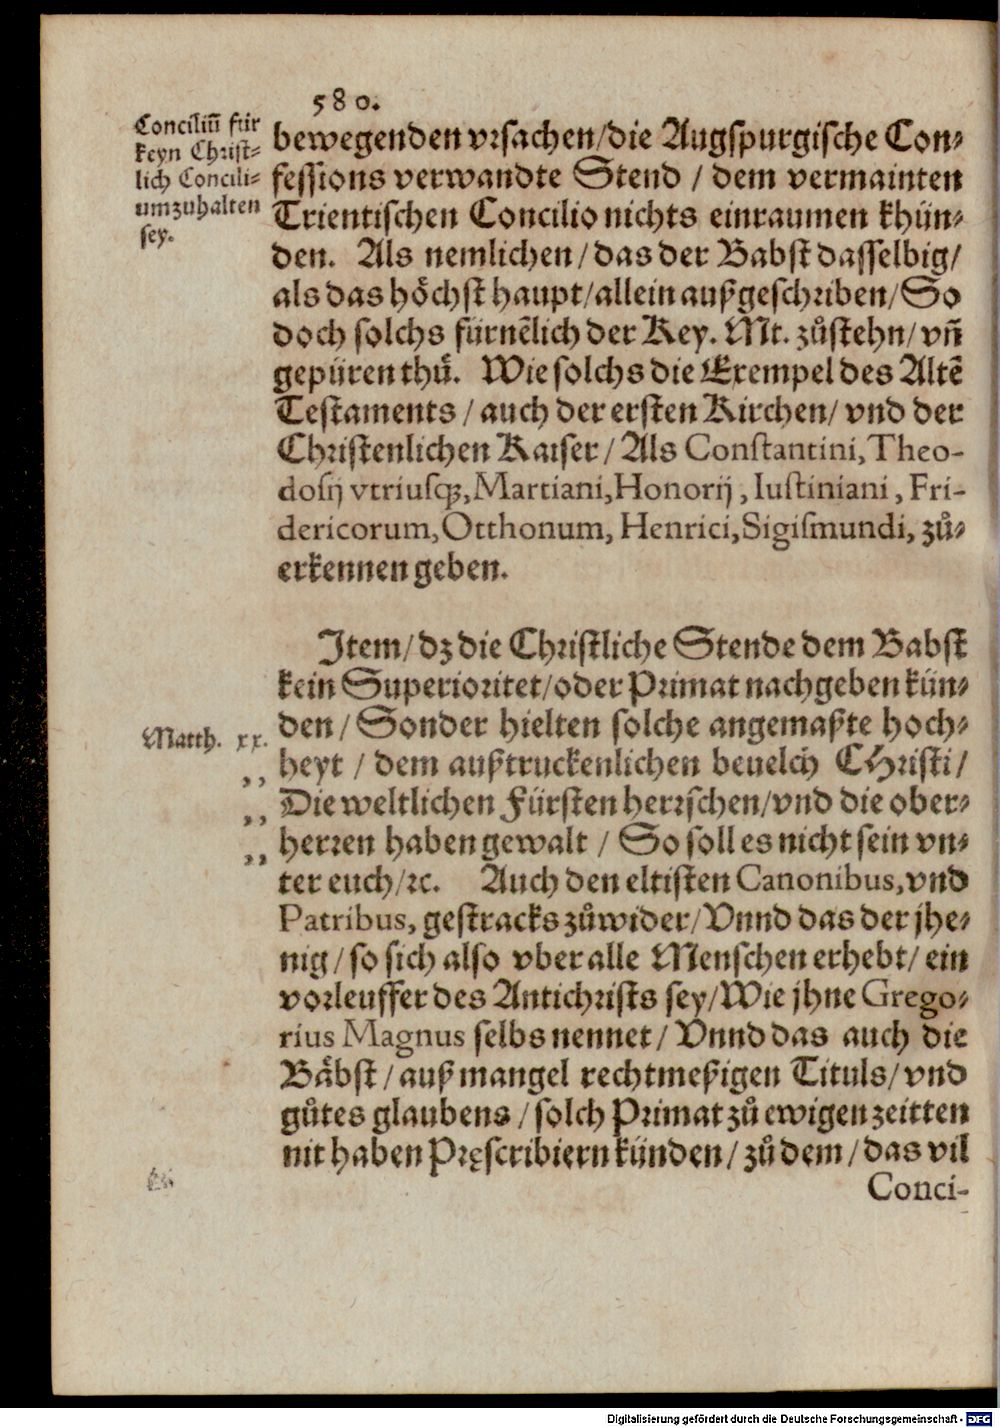 580.
Conciliū für
keyn Christ-
lich Concili-
um zuhalten
sey.
bewegenden vrsachen/die Augspurgische Con-
fessions verwandte Stend / dem vermainten
Trientischen Concilio nichts einraumen khün-
den. Als nemlichen/das der Babst dasselbig/
als das höchst haupt/allein außgeschriben/So
doch solchs fürnēlich der Key. Mt. zůstehn/vñ
gepüren thů. Wie solchs die Exempel des Altē
Testaments / auch der ersten Kirchen/ vnd der
Christenlichen Kaiser / Als Constantini, Theo-
dosij vtriusq;, Martiani, Honorij, Iustiniani, Fri-
dericorum, Otthonum, Henrici, Sigismundi, zů-
erkennen geben.
Item/dz die Christliche Stende dem Babst
kein Superioritet/oder Primat nachgeben kün-
den / Sonder hielten solche angemaßte hoch-
Matth. xx.
heyt / dem außtruckenlichen beuelch CHristi/
,, Die weltlichen Fürsten herrschen/vnd die ober-
,, herren haben gewalt / So soll es nicht sein vn-
,, ter euch/rc. Auch den eltisten Canonibus, vnd
Patribus, gestracks zůwider/Vnnd das der jhe-
nig / so sich also vber alle Menschen erhebt/ ein
vorleuffer des Antichrists sey/Wie jhne Grego-
rius Magnus selbs nennet / Vnnd das auch die
Bäbst / auß mangel rechtmeßigen Tituls/vnd
gůtes glaubens / solch Primat zů ewigen zeitten
nit haben Pręscribiern künden / zů dem / das vil
Conci-
Digitalisierung gefördert durch die Deutsche Forschungsgemeinschaft - DFG